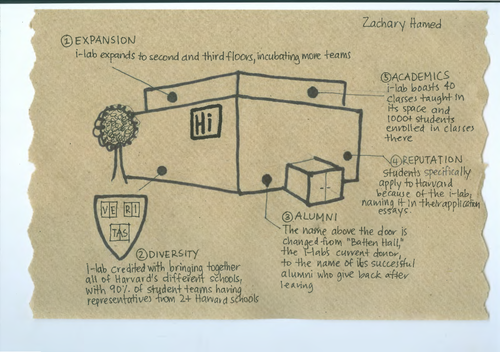 Zachary Hamed
① EXPANSION
i-lab expands to second and third floors, incubating more teams
⑤ ACADEMICS
i-lab boasts 40
classes taught in
its space and
1000+ students
enrolled in classes
there
Hi
④ REPUTATION
Students specifically
apply to Harvard
because of the i-lab,
naming it in their application
essays.
VE RI
TAS
③ ALUMNI
The name above the door is
changed from "Batten Hall,"
the i-lab's current donor,
to the name of its successful
alumni who give back after
leaving
② DIVERSITY
i-lab credited with bringing together
all of Harvard's different schools,
with 90% of student teams having
representatives from 2+ Harvard schools